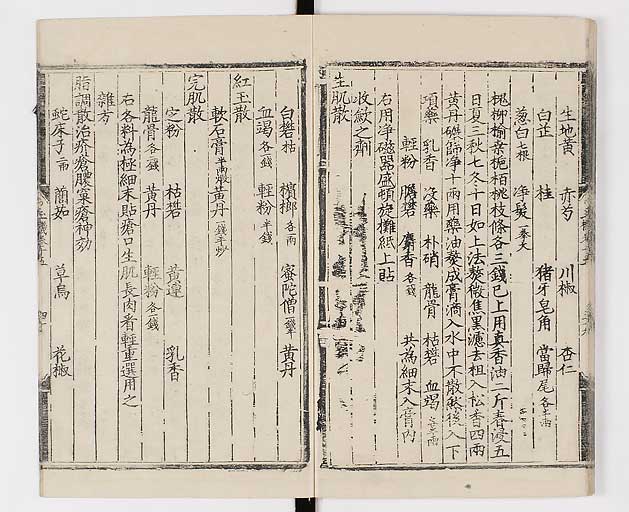 生地黄 赤芍 川椒 杏仁
白芷 桂 猪牙皂角 當歸尾各半両
葱白七根 净髮一拳大
槐柳榆桑桃枝條各三錢已上用真香油二斤春浸五
日夏三秋七冬十日如上法熬微焦黑濾去柤入松香四両
黄丹净十両用藥油熬成膏滴入水中不散然後入下
項藥 乳香 没藥 朴硝 龍骨 枯礬 血竭
輕粉 麝香各錢 共為細末入膏内
右用净磁器盛頓旋攤紙上貼
收歛之劑
生肌散
白礬枯 檳榔各両 蜜陀僧 黄丹
血竭各錢 輕粉半錢
紅玉散
軟石膏半両煅 黄丹一錢半炒
完肌散
定粉 枯礬 黄連 乳香
龍骨各錢 黄丹 輕粉各錢
右各料為極細末貼瘡口生肌長肉看輕重選用之
雜方
脂調散治疥瘡膿窠瘡神効
蛇床子二両 䕡茹 草烏 花椒